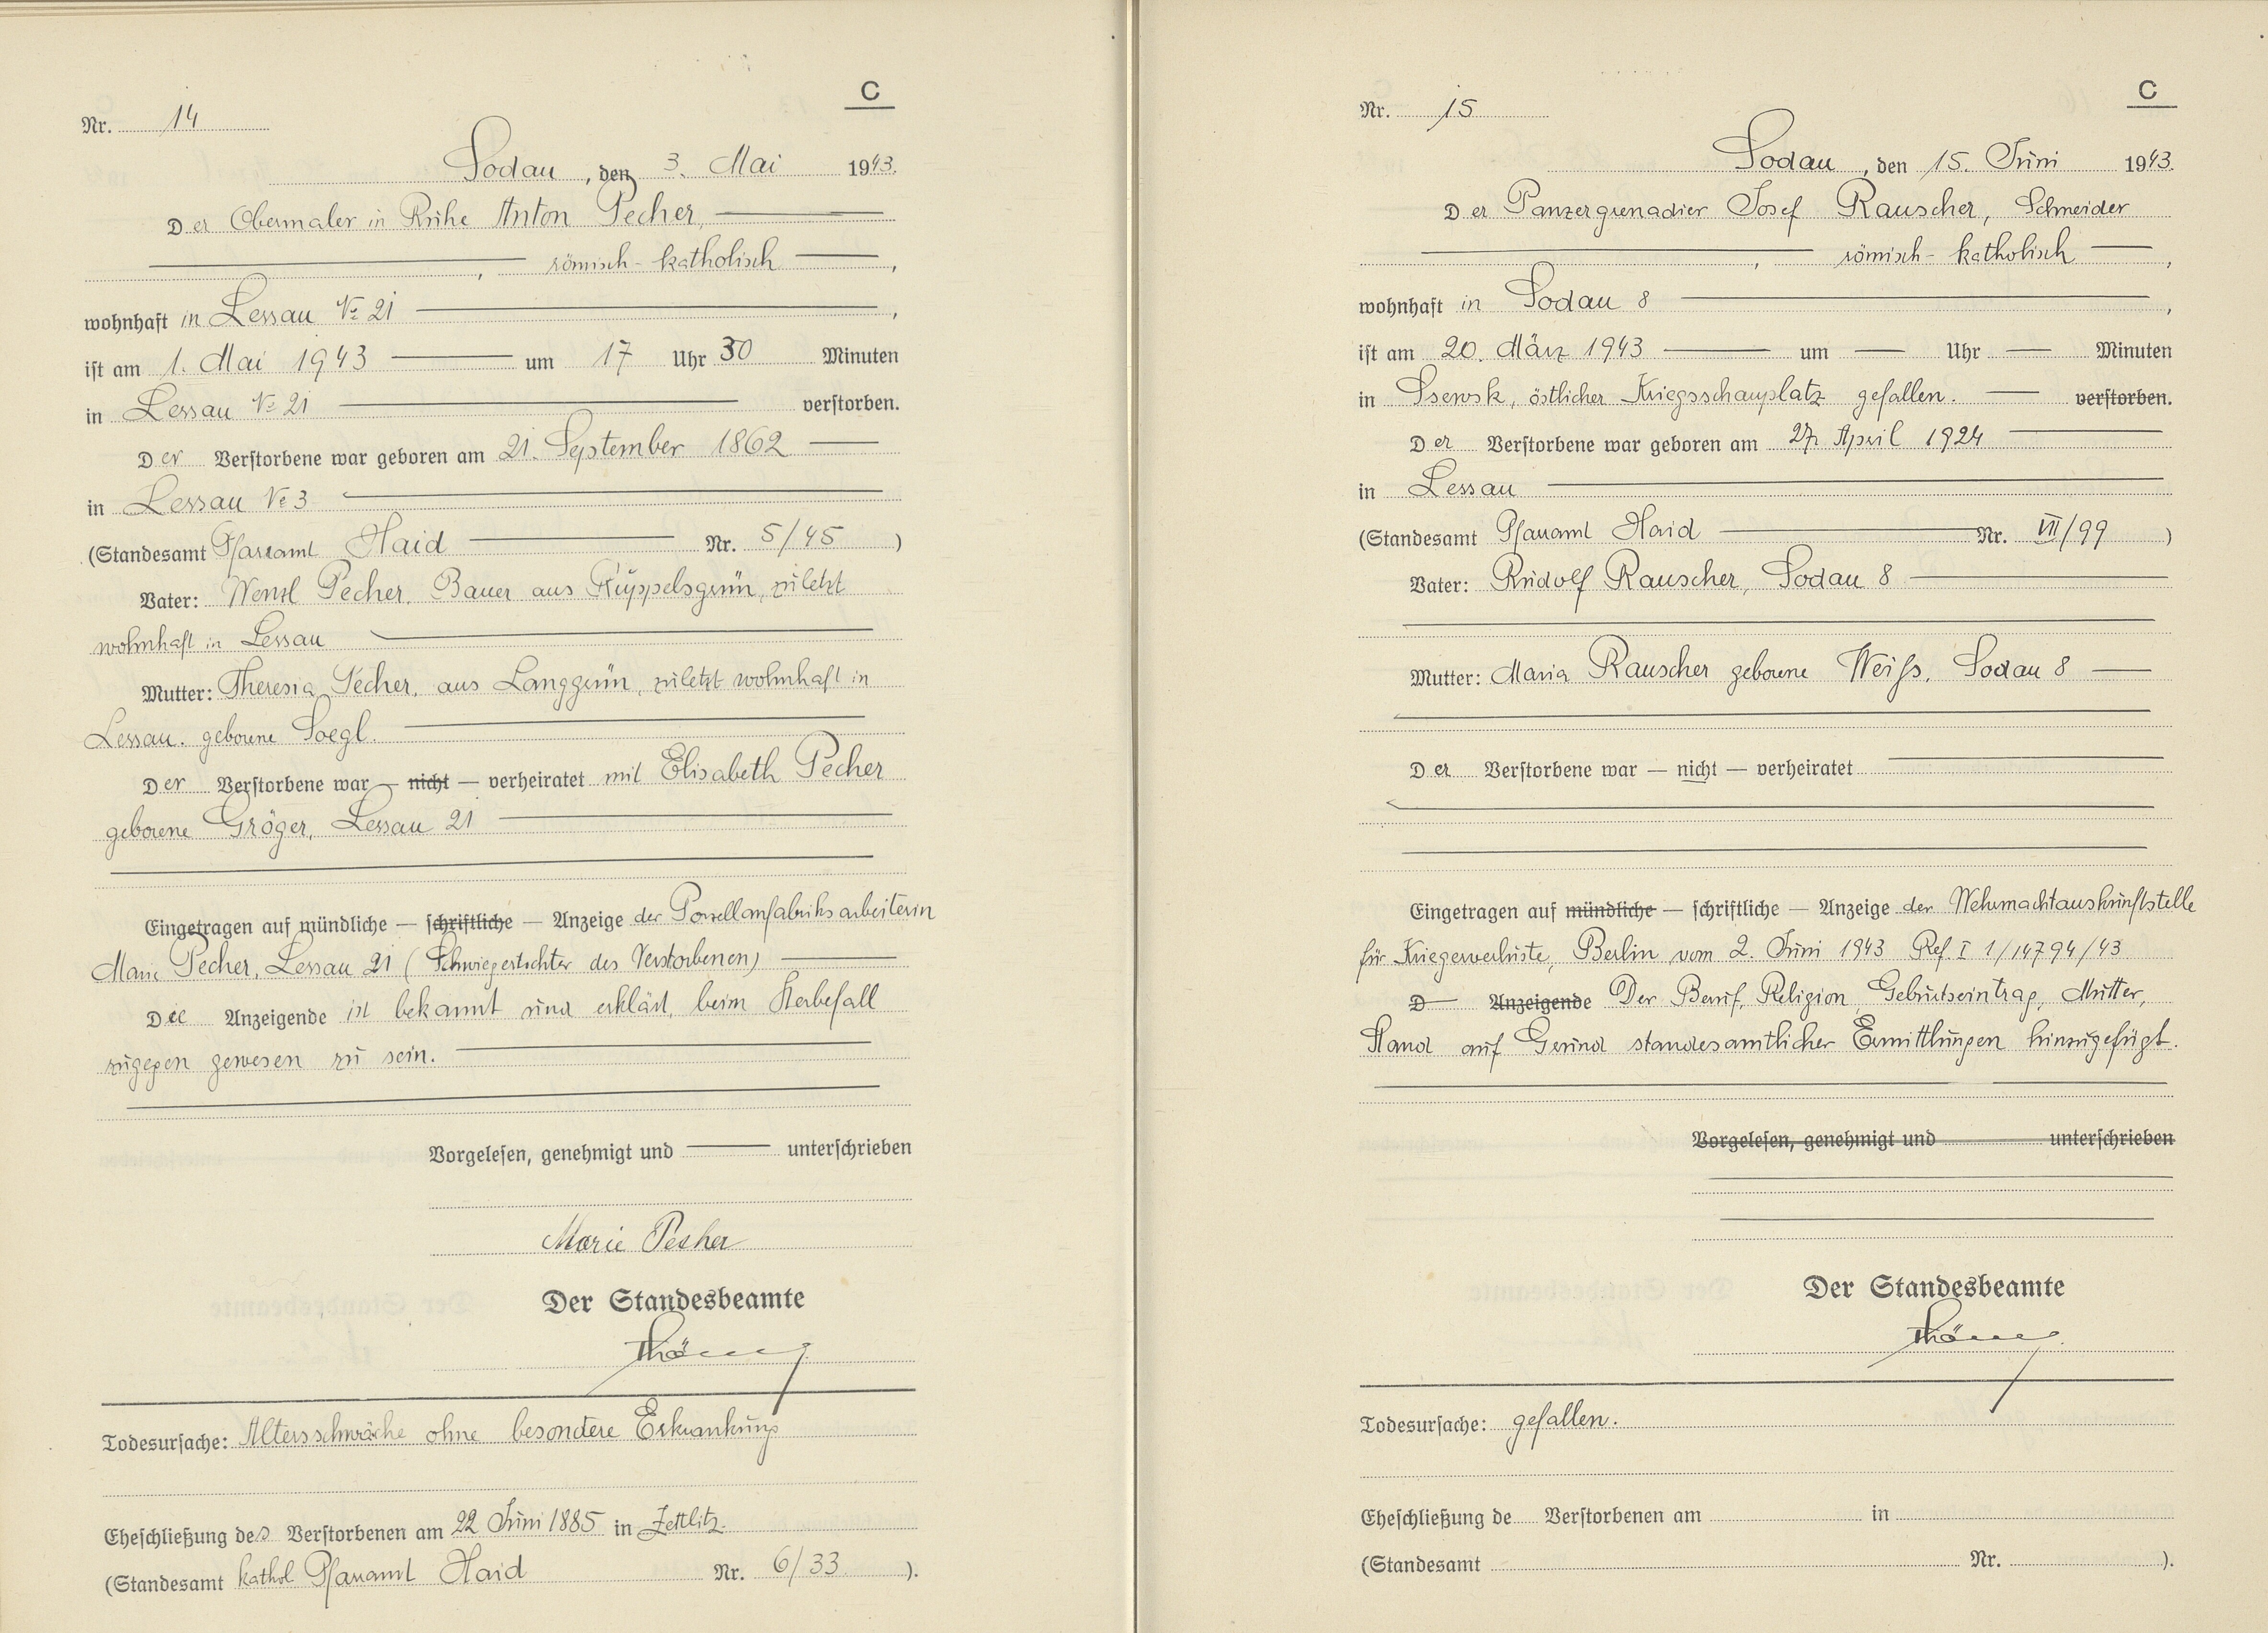 C
Nr. 14
Sodau, den 3. Mai 1943.
Der Obermaler in Ruhe Anton Pecher,
römisch-katholisch,
wohnhaft in Lessau No 21,
ist am 1. Mai 1943 um 17 Uhr 30 Minuten
in Lessau No 21 verstorben.
Der Verstorbene war geboren am 21. September 1862
in Lessau No 3
(Standesamt Pfarramt Haid Nr. 5/45)
Vater: Wenzl Pecher, Bauer aus Ruppelsgrün, zuletzt
wohnhaft in Lessau
Mutter: Theresia Pecher, aus Langgrün, zuletzt wohnhaft in
Lessau. geborene
Der Verstorbene war — nicht — verheiratet mit Elisabeth Pecher
geborene Gröger, Lessau 21
Eingetragen auf mündliche — schriftliche — Anzeige der Porzellanfabriksarbeiterin
Marie Pecher, Lessau 21 (Schwiegertochter des Verstorbenen)
Die Anzeigende ist bekannt und erklärt, beim Sterbefall
zugegen gewesen zu sein.
Vorgelesen, genehmigt und unterschrieben
Marie Pecher
Der Standesbeamte
Todesursache: Altersschwäche ohne besondere Erkrankung
Eheschließung des Verstorbenen am 22 Juni 1885 in Zettlitz
(Standesamt kathol Pfarramt Haid Nr. 6/33).
C
Nr. 15
Sodau, den 15. Juni 1943.
Der Panzergrenadier Josef Rauscher, Schneider
römisch-katholisch,
wohnhaft in Sodau 8,
ist am 20. März 1943 um — Uhr — Minuten
in Ssewsk, östlicher Kriegsschauplatz gefallen. verstorben.
Der Verstorbene war geboren am 27. April 1924
in Lessau
(Standesamt Pfarramt Haid Nr. VII/99)
Vater: Rudolf Rauscher, Sodau 8
Mutter: Maria Rauscher geborene Weiss, Sodau 8
Der Verstorbene war — nicht — verheiratet
Eingetragen auf mündliche — schriftliche — Anzeige der Wehrmachtauskunftstelle
für Kriegerverluste, Berlin vom 2. Juni 1943 Ref. I 1/14794/43
D Anzeigende Der Beruf, Religion, Geburtseintrag, Mutter,
Stand auf Grund standesamtlicher Ermittlungen hinzugefügt.
Vorgelesen, genehmigt und unterschrieben
Der Standesbeamte
Todesursache: gefallen.
Eheschließung de Verstorbenen am in
(Standesamt Nr. ).